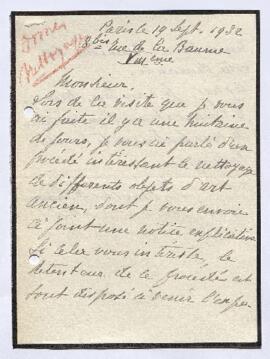 Paris le 19 Sept. 1932
8 bis rue de la Baume
VIII eme
Monsieur,
Lors de la visite que je vous
ai faite il y a une huitaine
de jours, je vous ai parlé d'un
procédé intéressant le nettoyage
de différents objets d'art
ancien, dont je vous envoie
ci joint une notice explicative
Si cela vous intéresse, le
détenteur de ce procédé est
tout disposé à venir l'expé